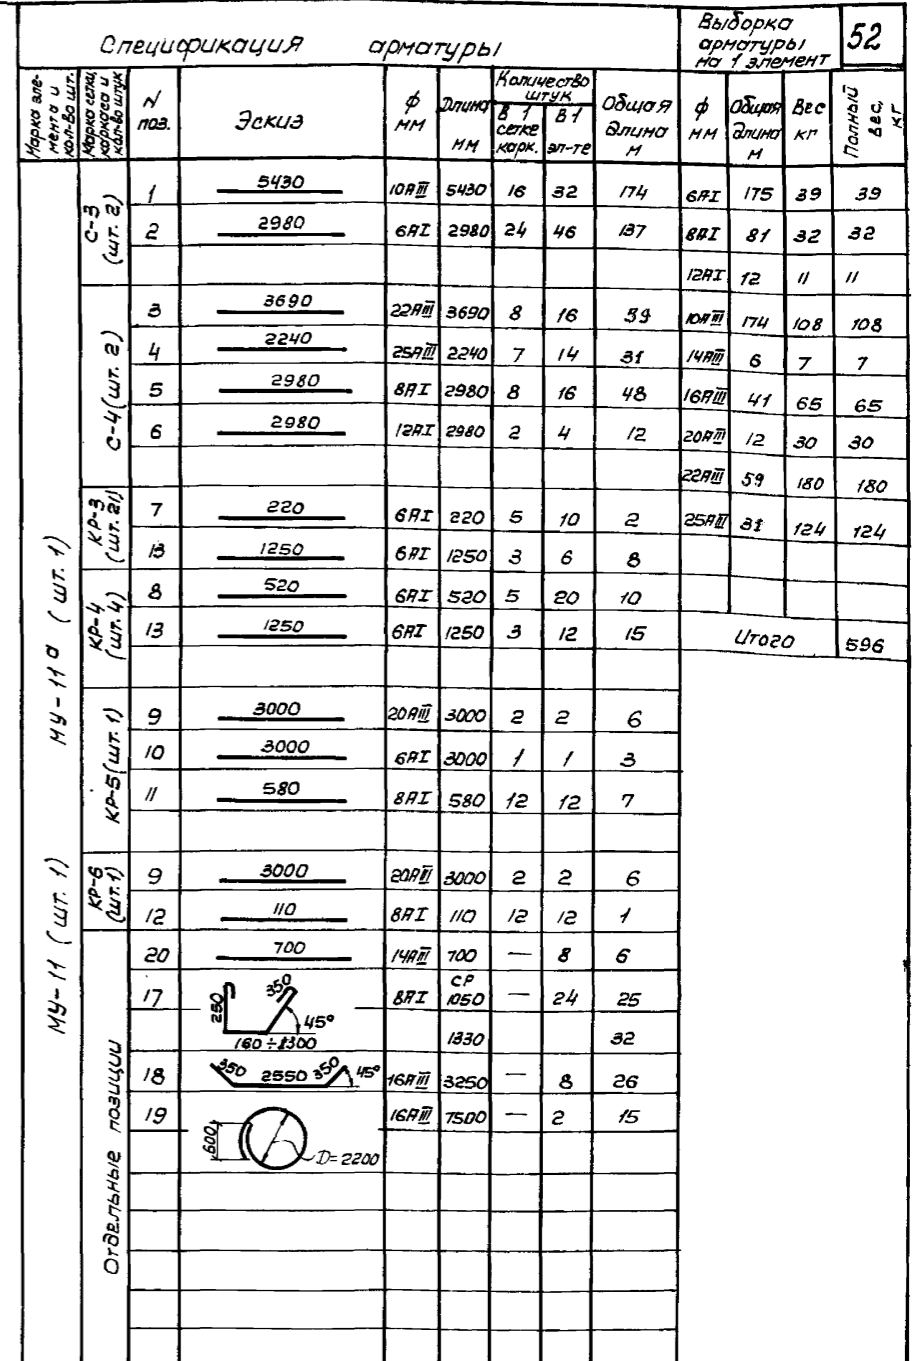 Спецификация арматуры
Выборка арматуры на 1 элемент
52
Марка элемента и кол-во шт.
Марка сетки, каркаса и кол-во штук
N поз.
Эскиз
ф мм
Длина мм
Количество штук
в 1 сетке карк.
в 1 эл-те
Общая длина м
ф мм
Общая длина м
Вес кг
Полный вес, кг
МУ-11а (шт. 1)
МУ-11 (шт. 1)
С-3 (шт. 2)
1 5430 10АIII 5430 16 32 174
2 2980 6АI 2980 24 46 137
С-4 (шт. 2)
3 3690 22АIII 3690 8 16 59
4 2240 25АIII 2240 7 14 31
5 2980 8АI 2980 8 16 48
6 2980 12АI 2980 2 4 12
КР-3 (шт. 2)
7 220 6АI 220 5 10 2
13 1250 6АI 1250 3 6 8
КР-4 (шт. 4)
8 520 6АI 520 5 20 10
13 1250 6АI 1250 3 12 15
КР-5 (шт. 1)
9 3000 20АIII 3000 2 2 6
10 3000 6АI 3000 1 1 3
11 580 8АI 580 12 12 7
КР-6 (шт. 1)
9 3000 20АIII 3000 2 2 6
12 110 8АI 110 12 12 1
Отдельные позиции
20 700 14АIII 700 — 8 6
17 250 350 45° 160÷1300 8АI ср 1050 — 24 25
1330 32
18 350 2550 350 45° 16АIII 3250 — 8 26
19 600 D=2200 16АIII 7500 — 2 15
6АI 175 39 39
8АI 81 32 32
12АI 12 11 11
10АIII 174 108 108
14АIII 6 7 7
16АIII 41 65 65
20АIII 12 30 30
22АIII 59 180 180
25АIII 31 124 124
Итого 596